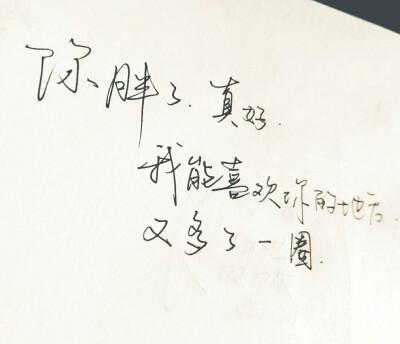 你胖了.真好.
我能喜欢你的地方
又多了一圈.